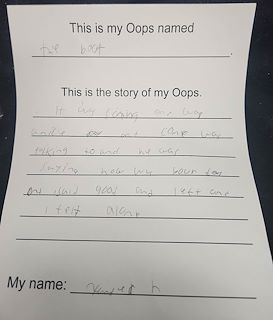 This is my Oops named
the boat
This is the story of my Oops.
It was coming one way
out one way
talking to and he was
saying how was your day
and i said good and left and
i felt alone
My name: h